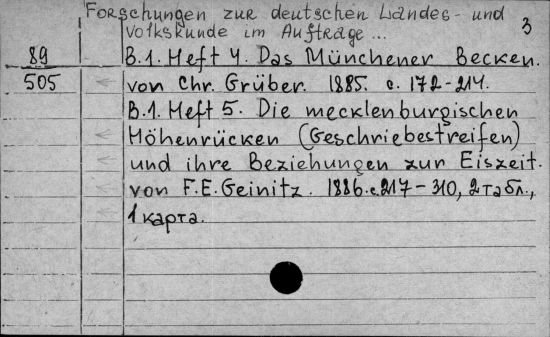 Forschungen zur deutschen Landes- und
Volkskunde im Auftrage ...
3
89
505
B.1. Heft 4. Das Münchener Becken.
von Chr. Grüber. 1885. с. 172-214.
B.1. Heft 5. Die mecklenburgischen
Höhenrücken (Geschriebestreifen)
und ihre Beziehungen zur Eiszeit.
von F.E. Geinitz. 1886. с. 217-310, 2 табл.,
1 карта.